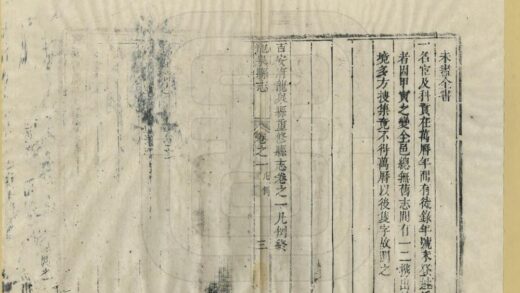 未書全書
一名宦及科貢在萬曆年間有徒錄年號未登
者因甲寅之變全邑總無舊志間有一二攜出
境多方搜集竟不得萬曆以後隻字故闕之
吉安府龍泉縣重修縣志卷之一凡例終
龍泉縣志 卷之一 凡例 三